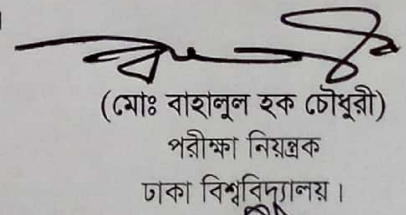 (মোঃ বাহালুল হক চৌধুরী)
পরীক্ষা নিয়ন্ত্রক
ঢাকা বিশ্ববিদ্যালয়।